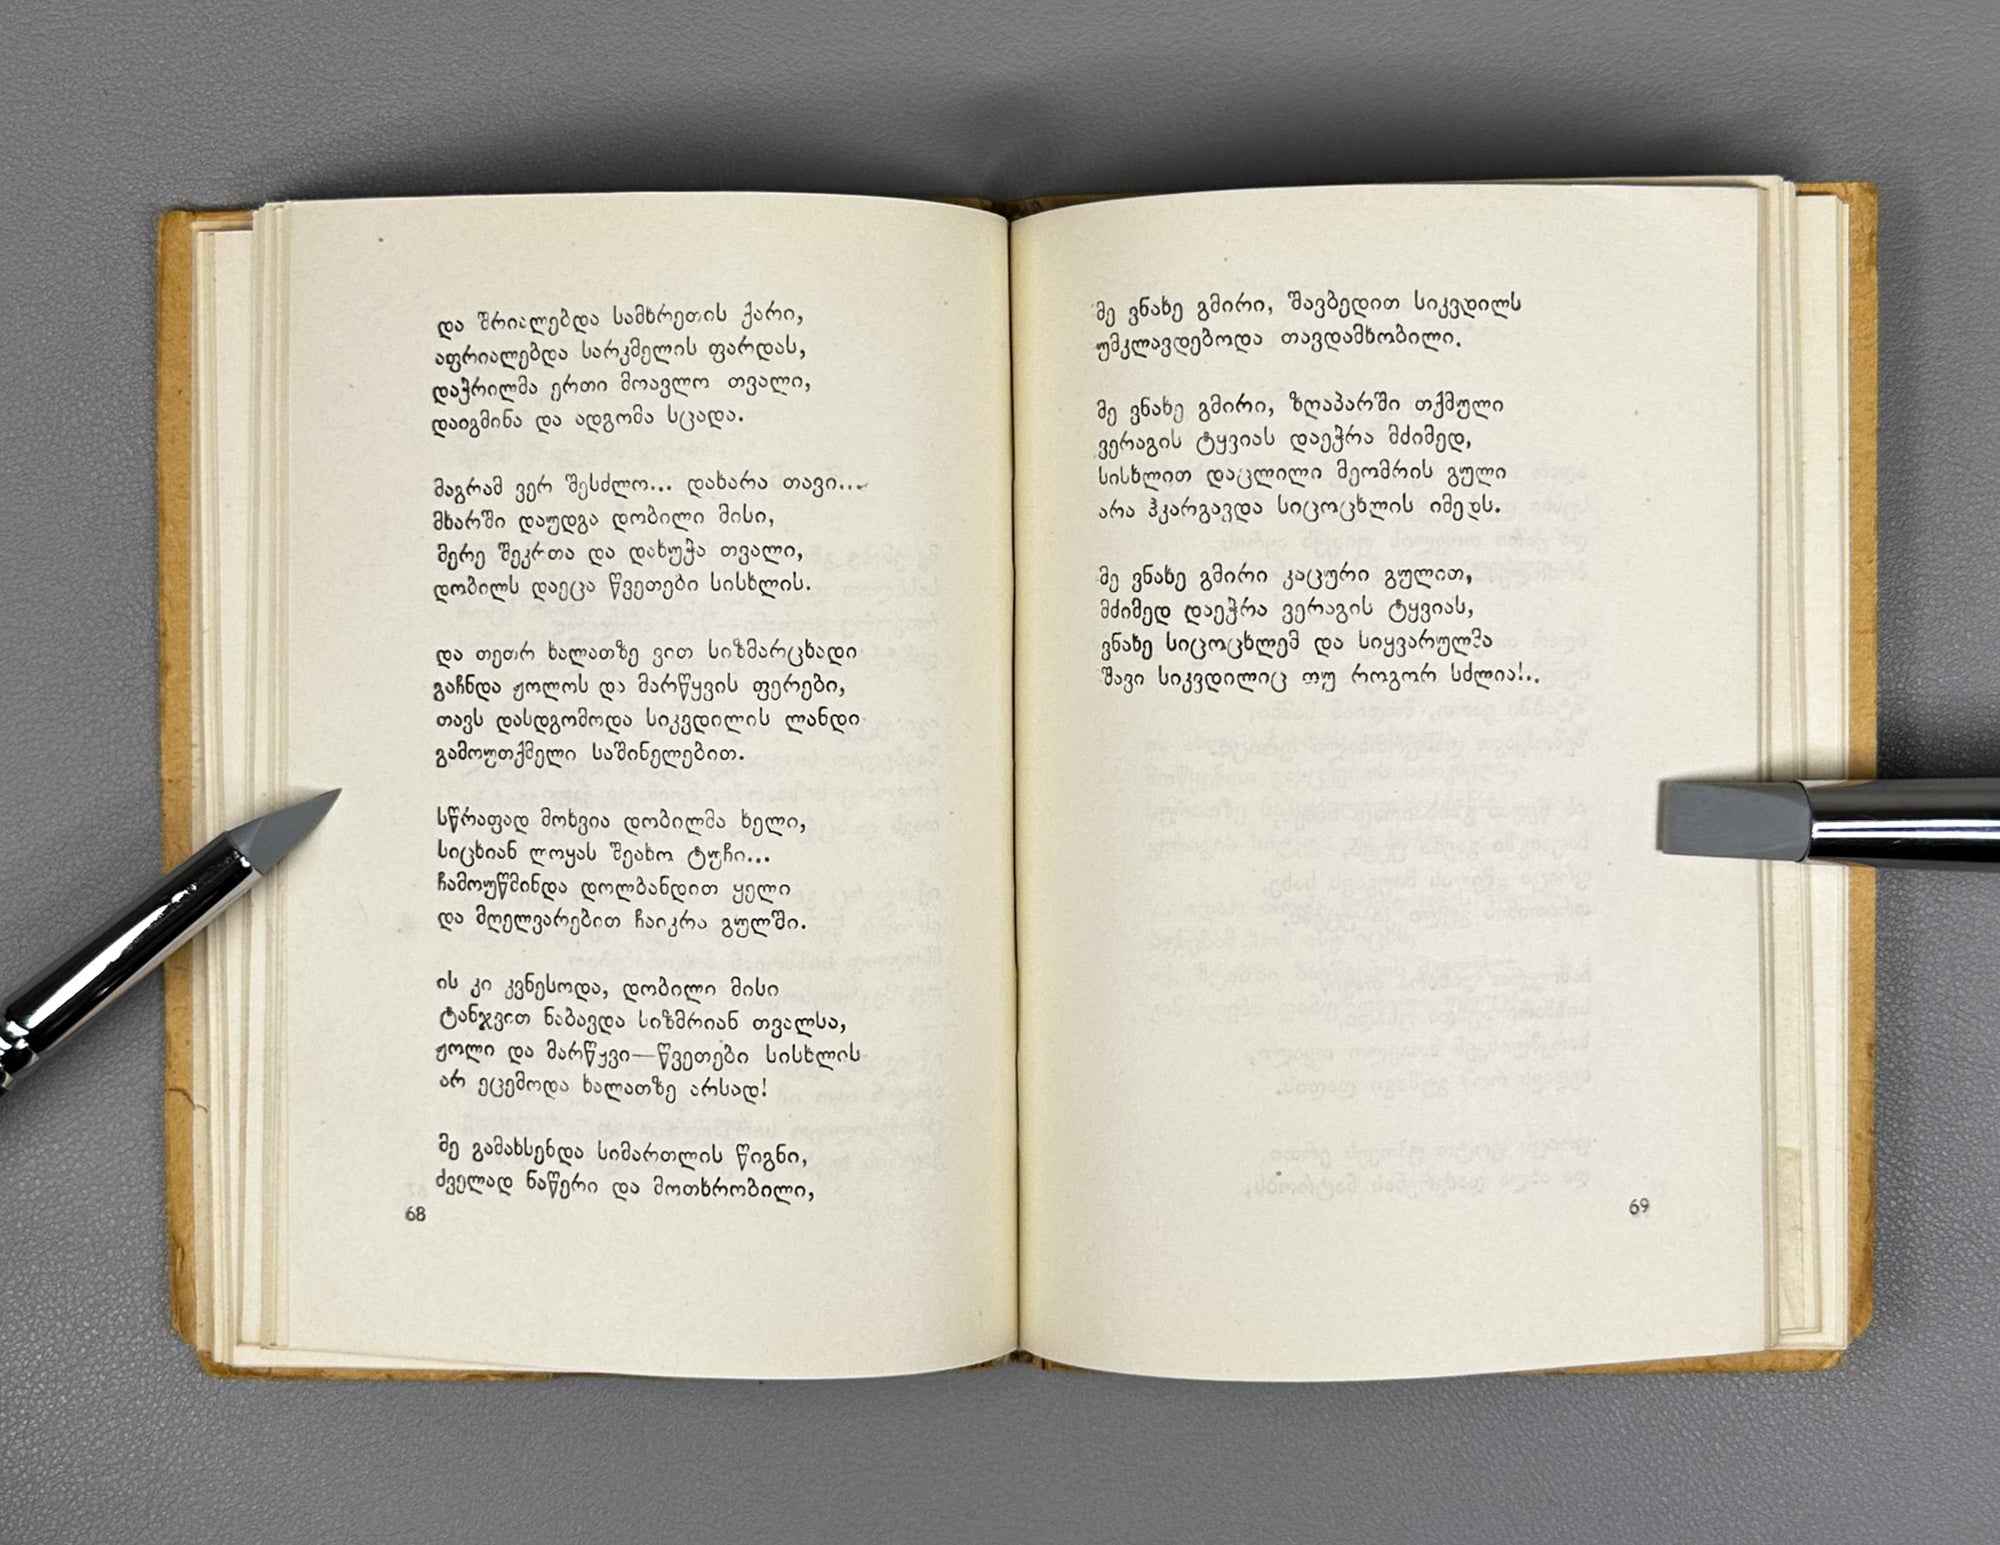 და შრიალებდა სამხრეთის ქარი,
აფრიალებდა სარკმელის ფარდას,
დაჭრილმა ერთი მოავლო თვალი,
დაიგმინა და ადგომა სცადა.
მაგრამ ვერ შესძლო... დახარა თავი...
მხარში დაუდგა დობილი მისი,
მერე შეკრთა და დახუჭა თვალი,
დობილს დაეცა წვეთები სისხლის.
და თეთრ ხალათზე ვით სიზმარცხადი
გაჩნდა ჟოლოს და მარწყვის ფერები,
თავს დასდგომოდა სიკვდილის ლანდი
გამოუთქმელი საშინელებით.
სწრაფად მოხვია დობილმა ხელი,
სიცხიან ლოყას შეახო ტუჩი...
ჩამოუწმინდა დოლბანდით ყელი
და მღელვარებით ჩაიკრა გულში.
ის კი კვნესოდა, დობილი მისი
ტანჯვით ნაბავდა სიზმრიან თვალსა,
ჟოლი და მარწყვი—წვეთები სისხლის
არ ეცემოდა ხალათზე არსად!
მე გამახსენდა სიმართლის წიგნი,
ძველად ნაწერი და მოთხრობილი,
68
მე ვნახე გმირი, შავბედით სიკვდილს
უმკლავდებოდა თავდამხობილი.
მე ვნახე გმირი, ზღაპარში თქმული
ვერაგის ტყვიას დაეჭრა მძიმედ,
სისხლით დაცლილი მეომრის გული
არა ჰკარგავდა სიცოცხლის იმედს.
მე ვნახე გმირი კაცური გულით,
მძიმედ დაეჭრა ვერაგის ტყვიას,
ვნახე სიცოცხლემ და სიყვარულმა
შავი სიკვდილიც თუ როგორ სძლია!..
69